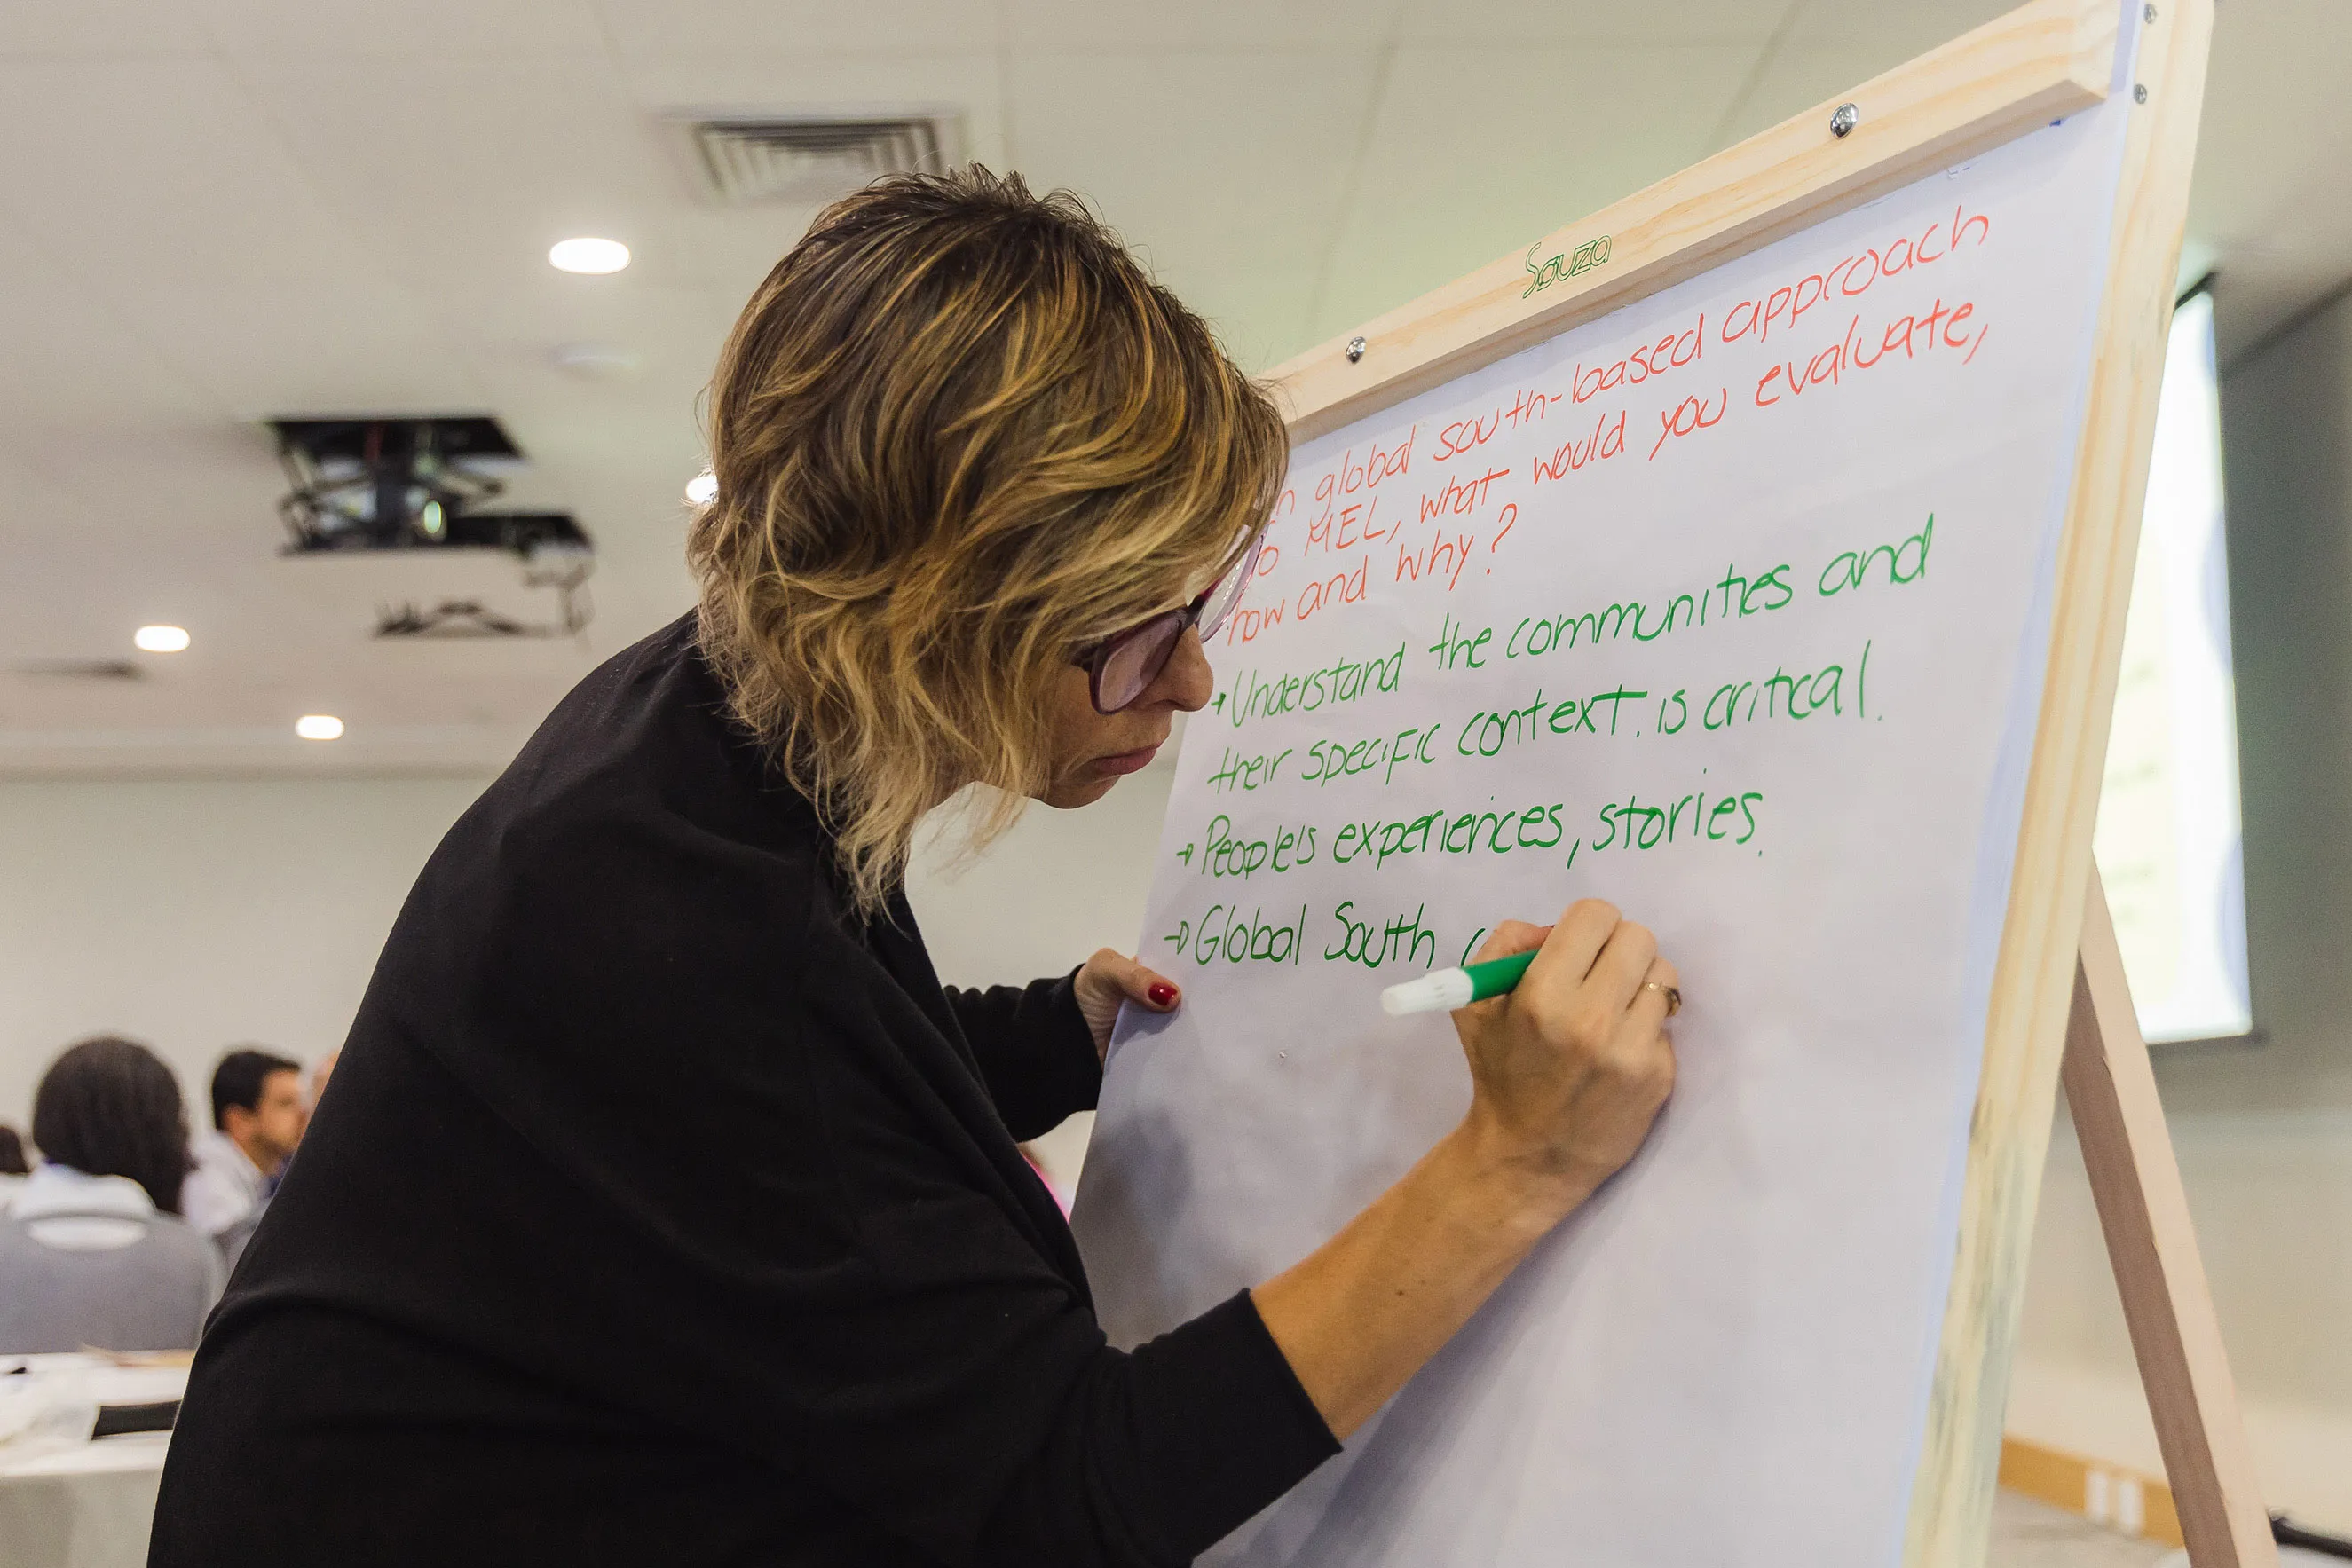 Souza
n global south-based approach
to MEL, what would you evaluate,
how and why?
→ Understand the communities and
their specific context. is critical.
→ People's experiences, stories.
→ Global South